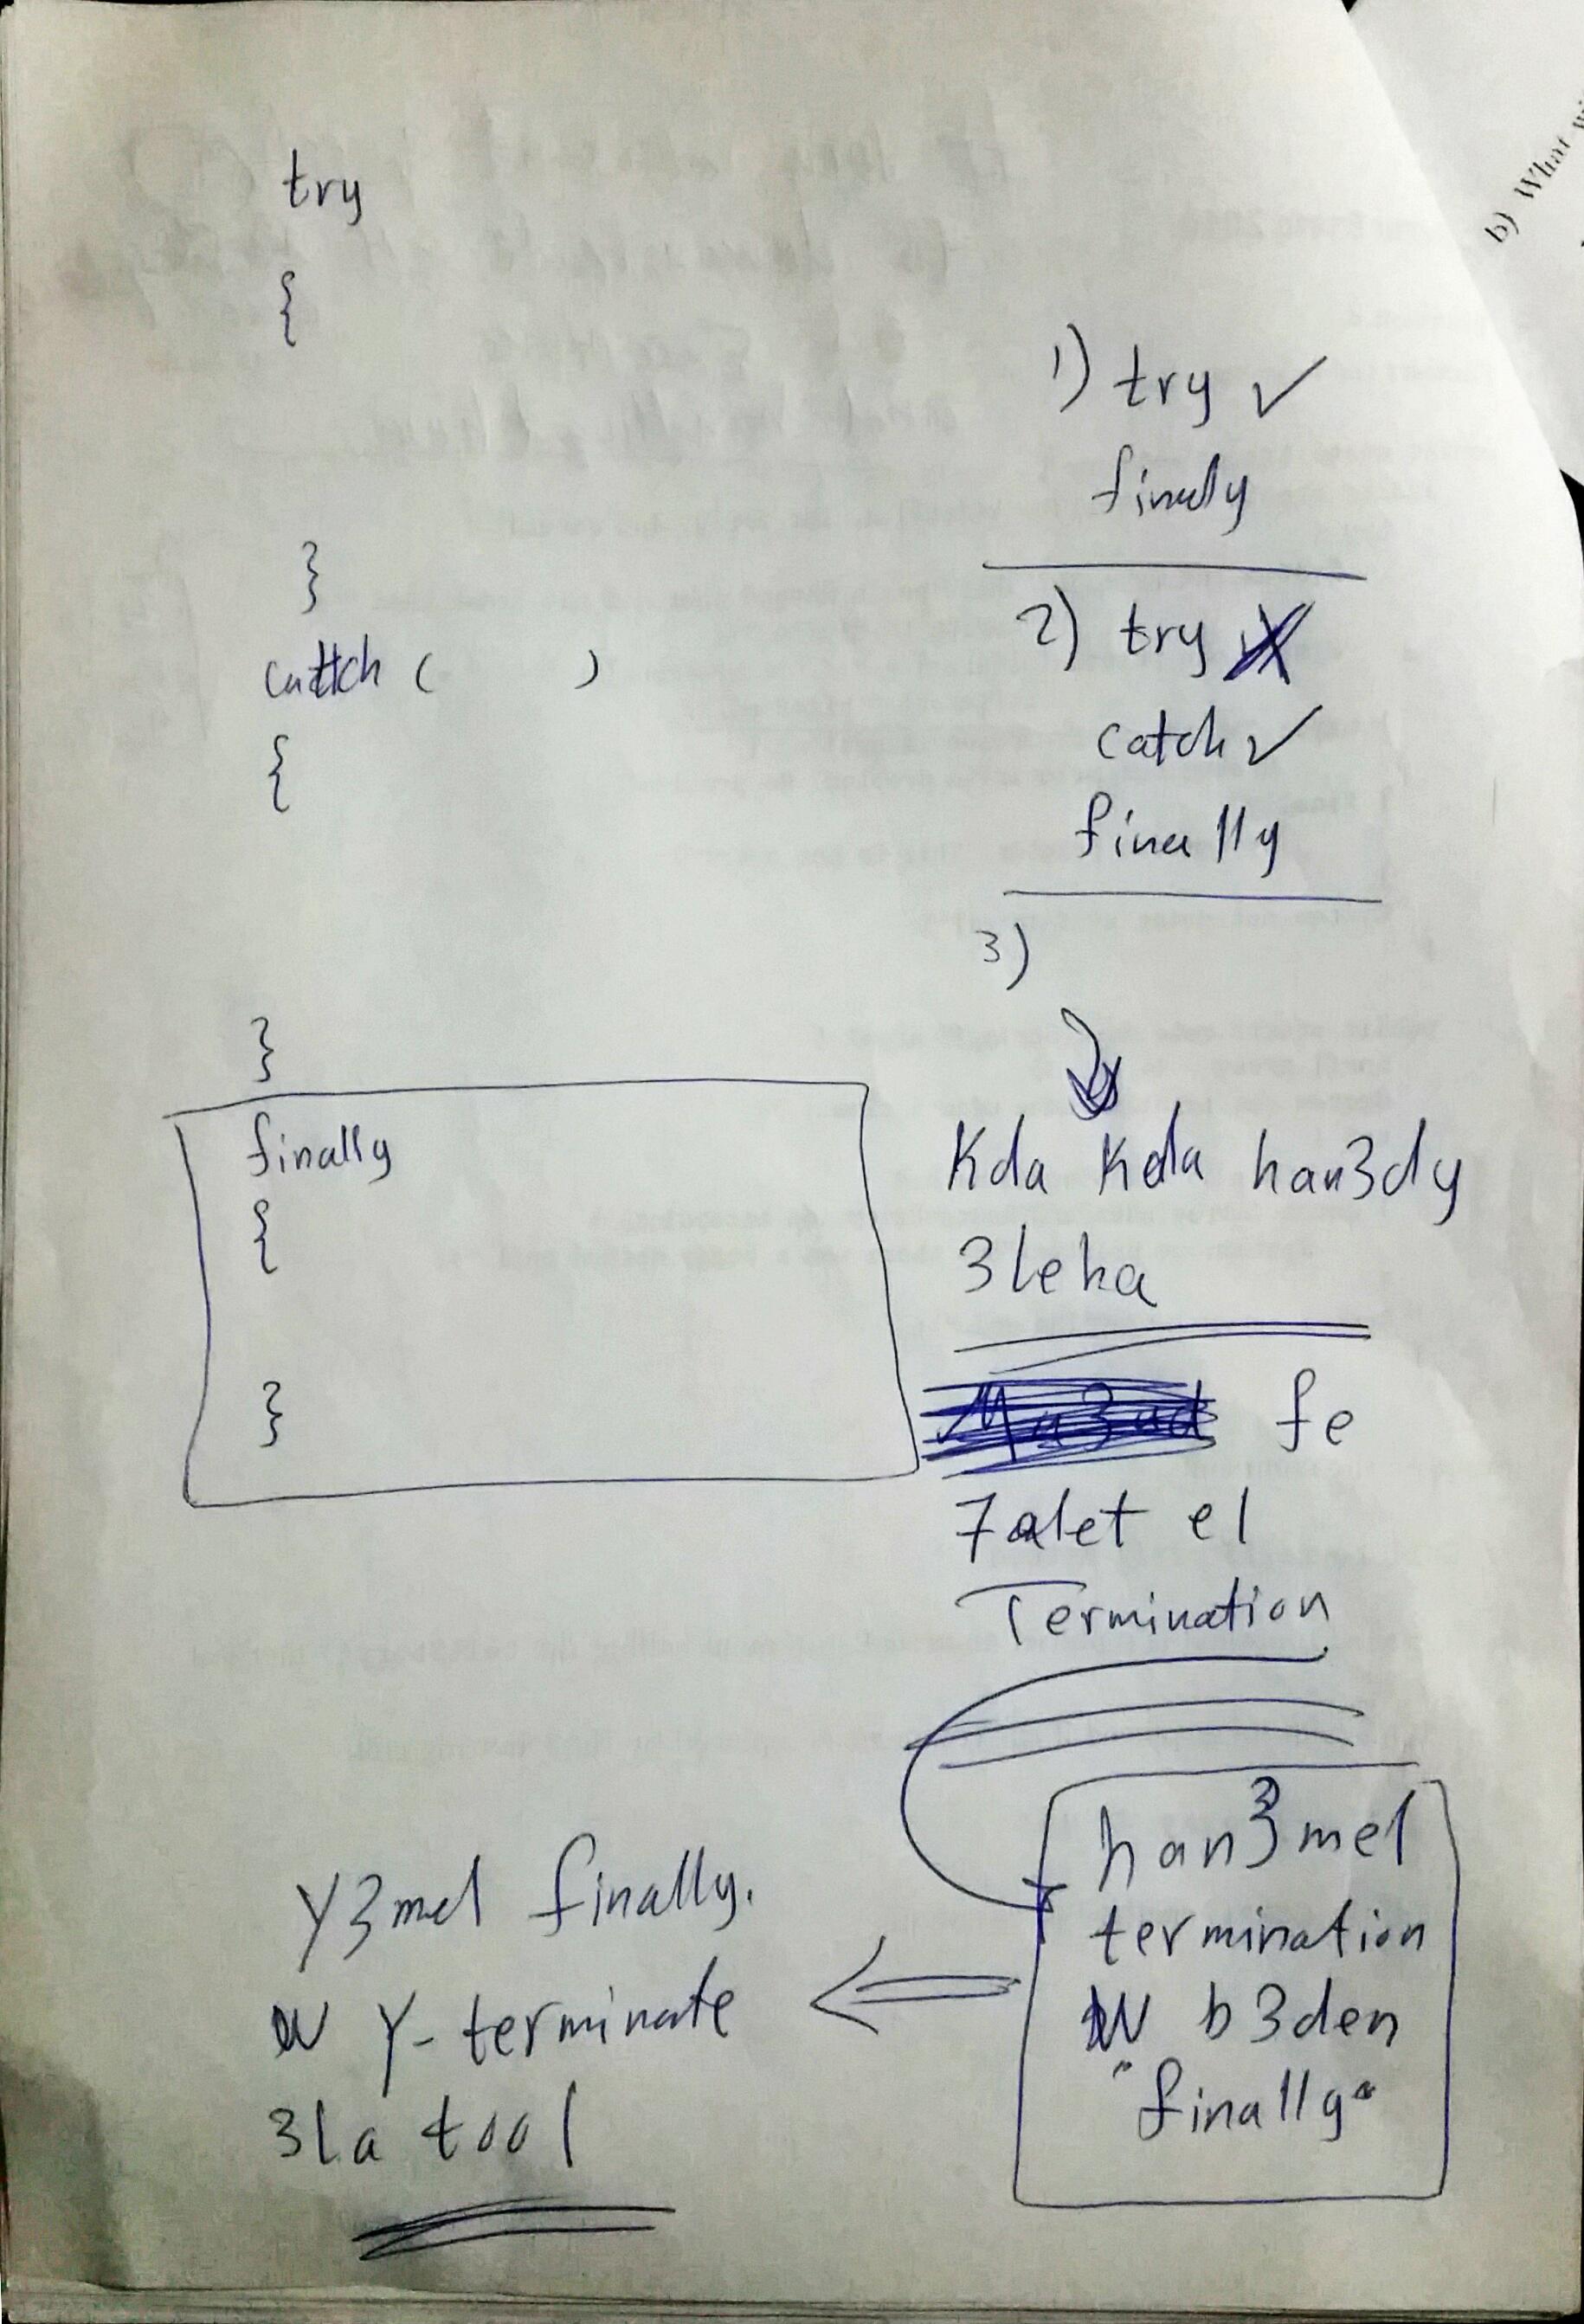 try
{
}
cattch ( )
{
}
finally
{
}
1) try ✓
finally
2) try X
catch ✓
finally
3)
Kda Kda han3dy
3leha
fe
7alet el
Termination
han3mel
termination
W b3den
"finally"
Y3mel finally.
W Y-terminate
3la tool
b) What